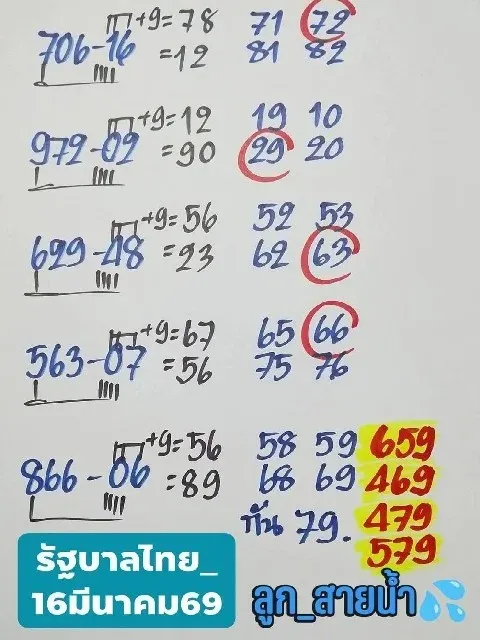 +9=78 71 72
706-16 =12 81 82
+9=12 19 10
972-02 =90 29 20
+9=56 52 53
629-48 =23 62 63
+9=67 65 66
563-07 =56 75 76
+9=56 58 59 659
866-06 =89 68 69 469
กัน 79. 479
579
รัฐบาลไทย_
16มีนาคม69
ลูก_สายน้ำ💦